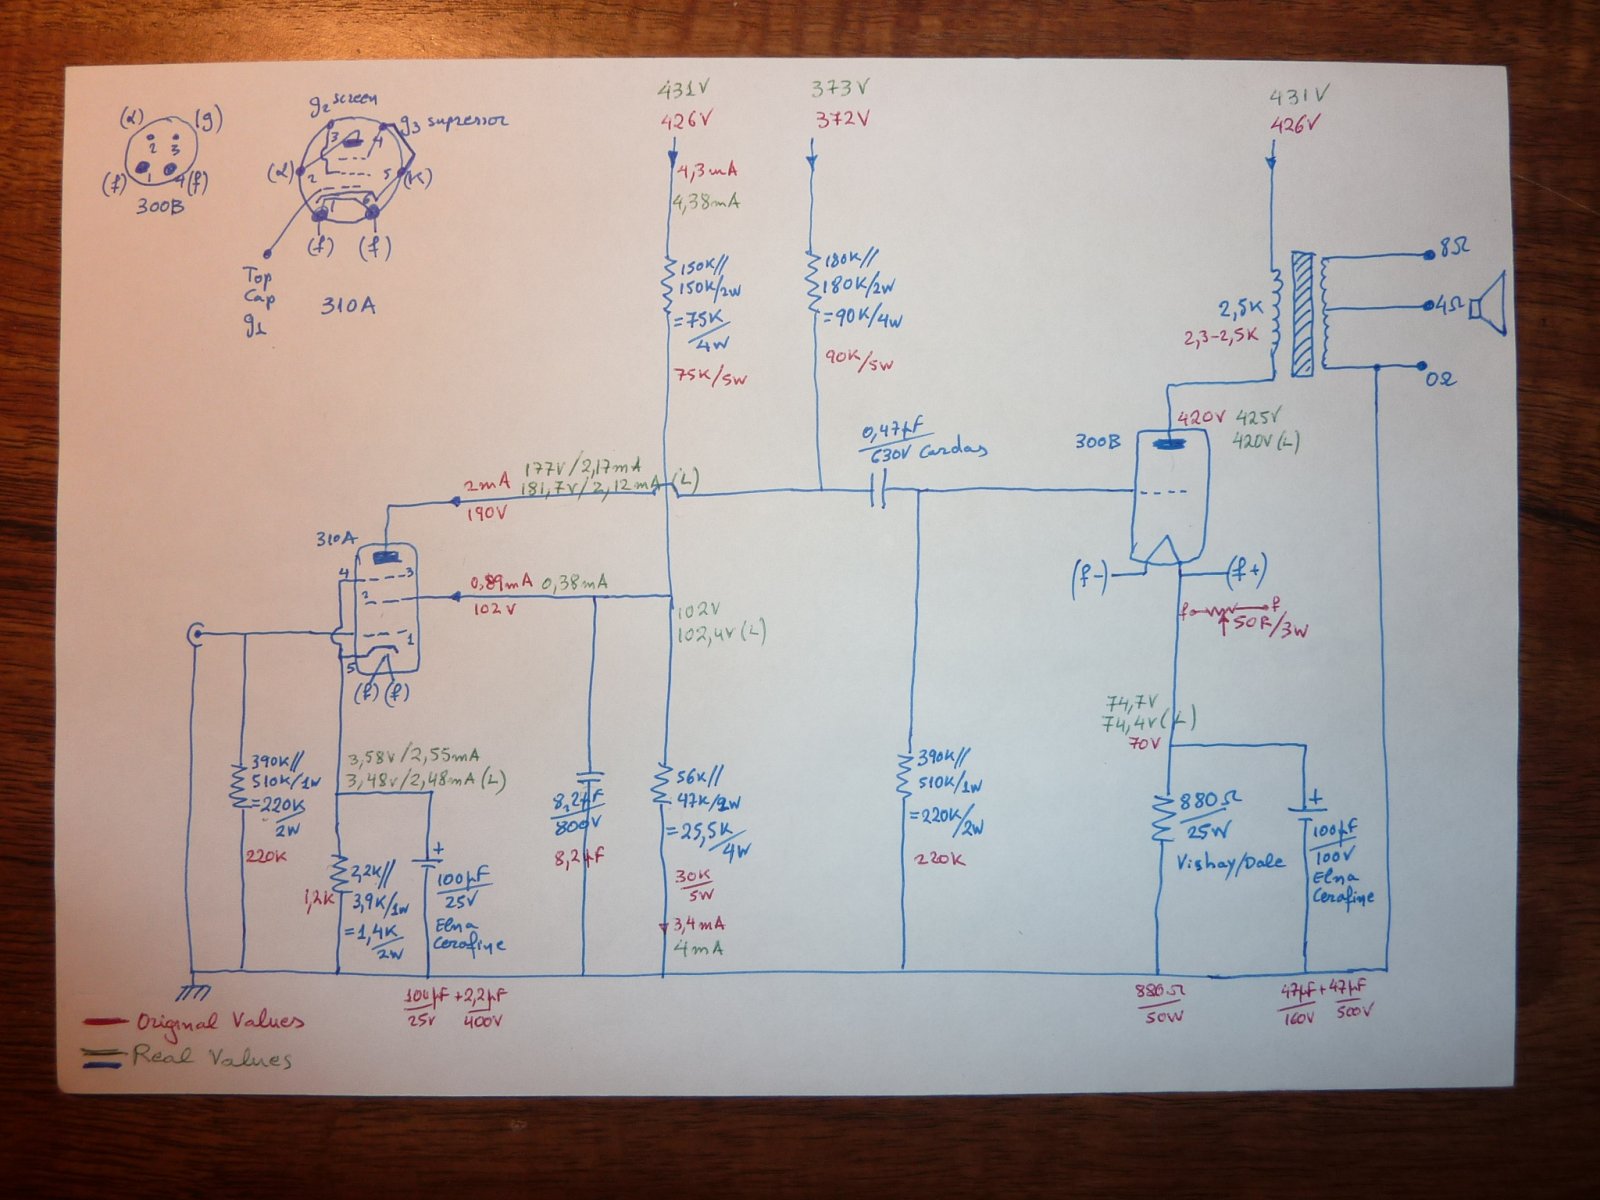 (a)
(g)
2 3
1 4
(f)
(f)
300B
g2 screen
g3 supressor
3
4
(a)
2
5
(K)
1
6
(f)
(f)
Top
Cap
g1
310A
431V
426V
4,3mA
4,38mA
150K//
150K/2W
=75K/4W
75K/5W
373V
372V
180K//
180K/2W
=90K/4W
90K/5W
431V
426V
2,5K
2,3-2,5K
8Ω
4Ω
0Ω
2mA
190V
177V/2,17mA
181,7V/2,12mA (L)
0,47µF
630V Cardas
300B
420V
425V
420V (L)
310A
4
3
2
1
5
(f) (f)
0,89mA
0,38mA
102V
102V
102,4V (L)
(f-)
(f+)
f
f
50R/3W
74,7V
74,4V (L)
70V
390K//
510K/1W
=220K/2W
220K
3,58V/2,55mA
3,48V/2,48mA (L)
2,2K//
3,9K/1W
=1,4K/2W
1,2K
+
100µF/25V
Elna
Cerafine
8,2µF
800V
8,2µF
56K//
47K/2W
=25,5K/4W
30K
5W
3,4mA
4mA
390K//
510K/1W
=220K/2W
220K
880Ω
25W
Vishay/Dale
+
100µF
100V
Elna
Cerafine
100µF/25V + 2,2µF/400V
880Ω
50W
47µF/160V + 47µF/500V
Original Values
Real Values